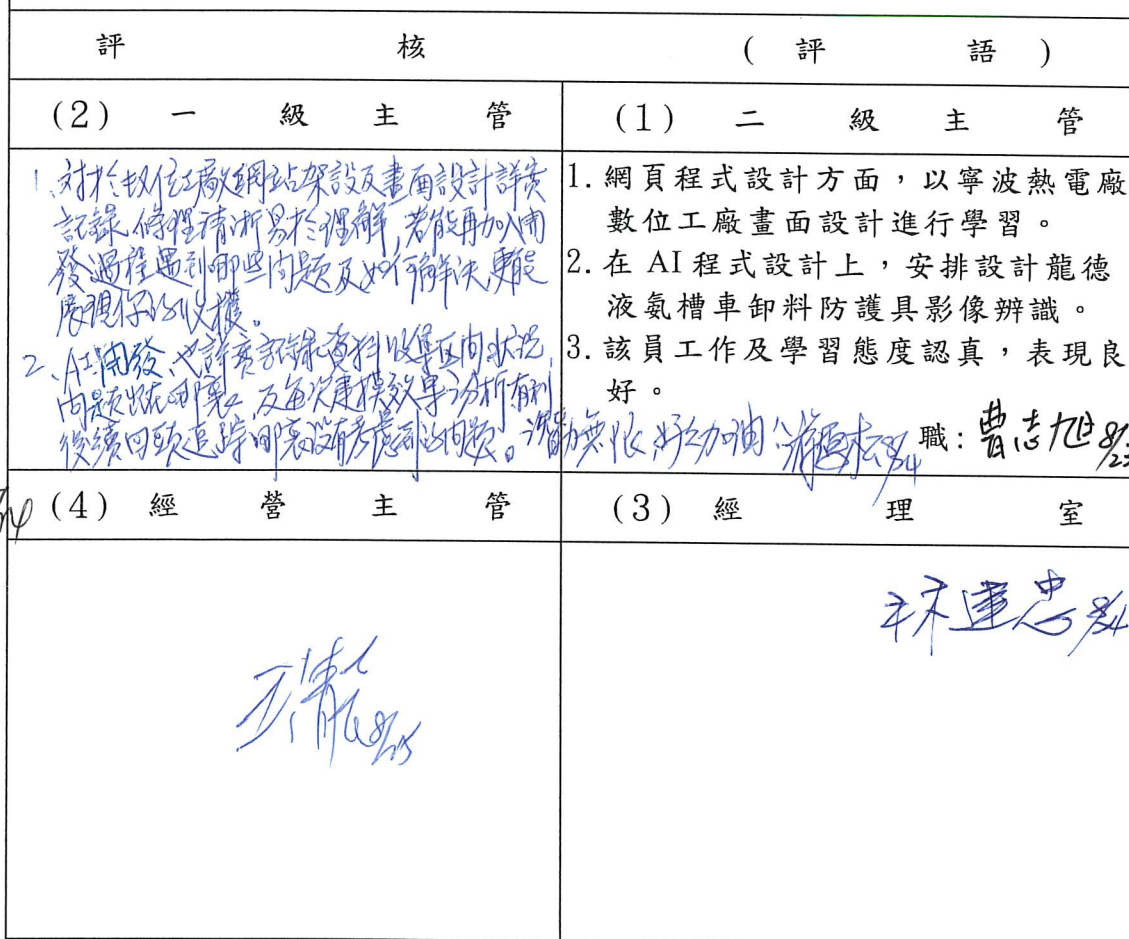 評 核 ( 評 語 )
(2) 一 級 主 管
(1) 二 級 主 管
1、對於數位工廠網站架設及畫面設計詳實
記錄、條理清晰易於理解,若能再加入開
發過程遇到哪些問題及如何解決,更能
展現你的收穫。
2、AI開發,也詳實記錄資料收集區間、狀況,
問題出在哪裏,及每次建模效果分析有利
後續回頭追踪哪裏沒有考慮到的問題。
好好加油!
8/24
1. 網頁程式設計方面,以寧波熱電廠
數位工廠畫面設計進行學習。
2. 在 AI 程式設計上,安排設計龍德
液氨槽車卸料防護具影像辨識。
3. 該員工作及學習態度認真,表現良
好。
職: 曹志旭 8/23
(4) 經 營 主 管
(3) 經 理 室
8/25
林達忠 8/24